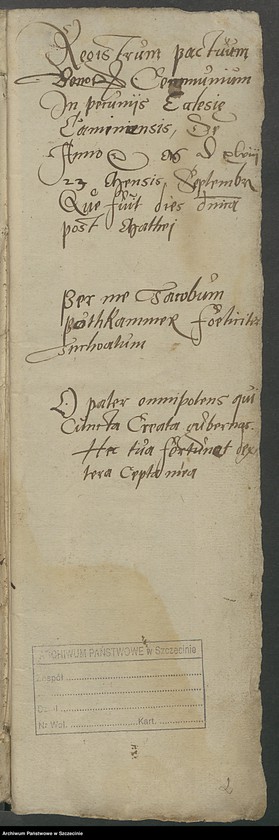 Registrum pactuum
Bono Communium
In pecunijs Eclesię
Caminensis, De
Anno D M D xlviij
23 Mensis Septembr
Que fuit dies dnica
post Mathei
Per me Iacobum
Puthkammer foeliciter
Inchoatum
O pater omnipotens qui
Cuncta Creata gubernas
Hec tua fortunet dex
tera Cepta mea
ARCHIWUM PAŃSTWOWE w Szczecinie
Zespół
Dział
Nr Wol. Kart.
2
Archiwum Państwowe w Szczecinie